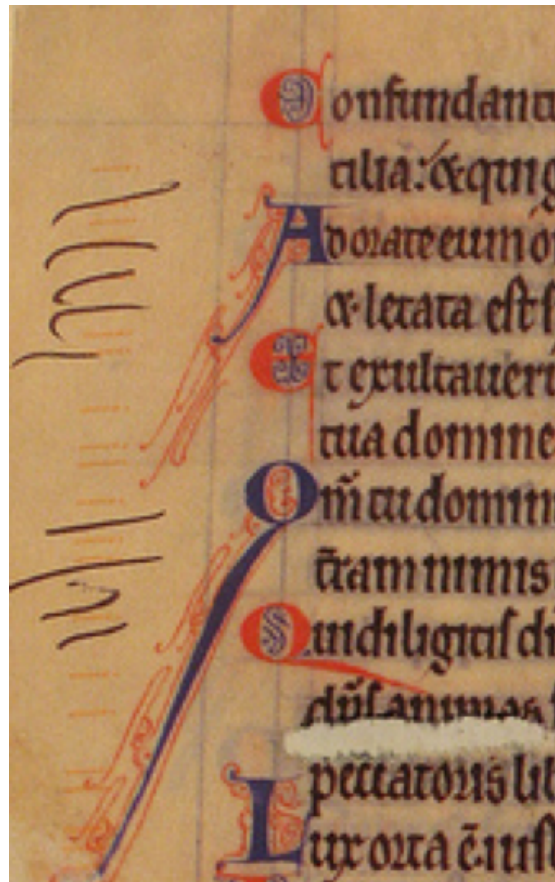 Confundant
tilia: & qui g
Adorate eum o
& letata est s
Et exultauer
tua domine
Qm̄ tu domin
t̄ram nimis
Qui diligitis d
dn̄s animas
peccatoris lib
Lux orta ē ius